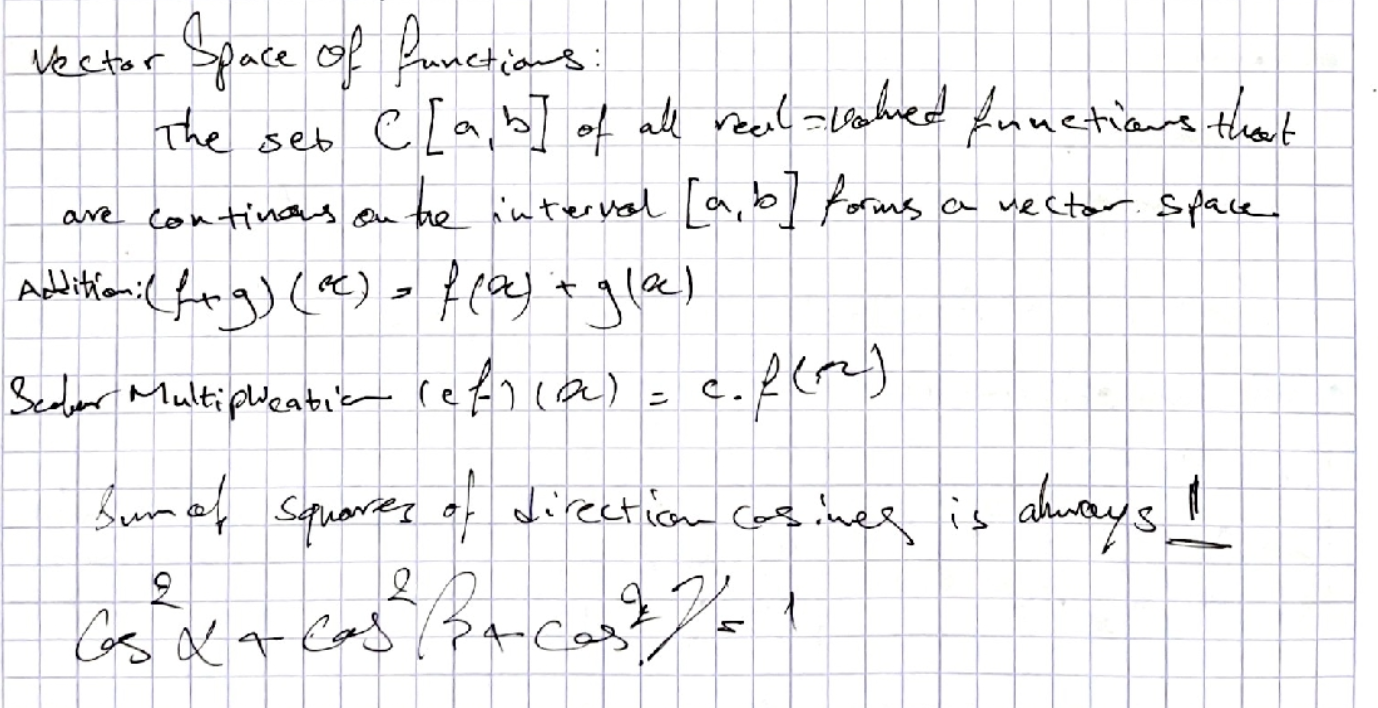 Vector Space of functions:
The set C [a, b] of all real-valued functions that
are continous on the interval [a, b] forms a vector space
Addition: (f+g) (x) = f(x) + g(x)
Scalar Multiplication (cf) (x) = c. f(x)
Sum of squares of direction cosines is always 1
Cos²α + Cos²β + Cos²γ = 1